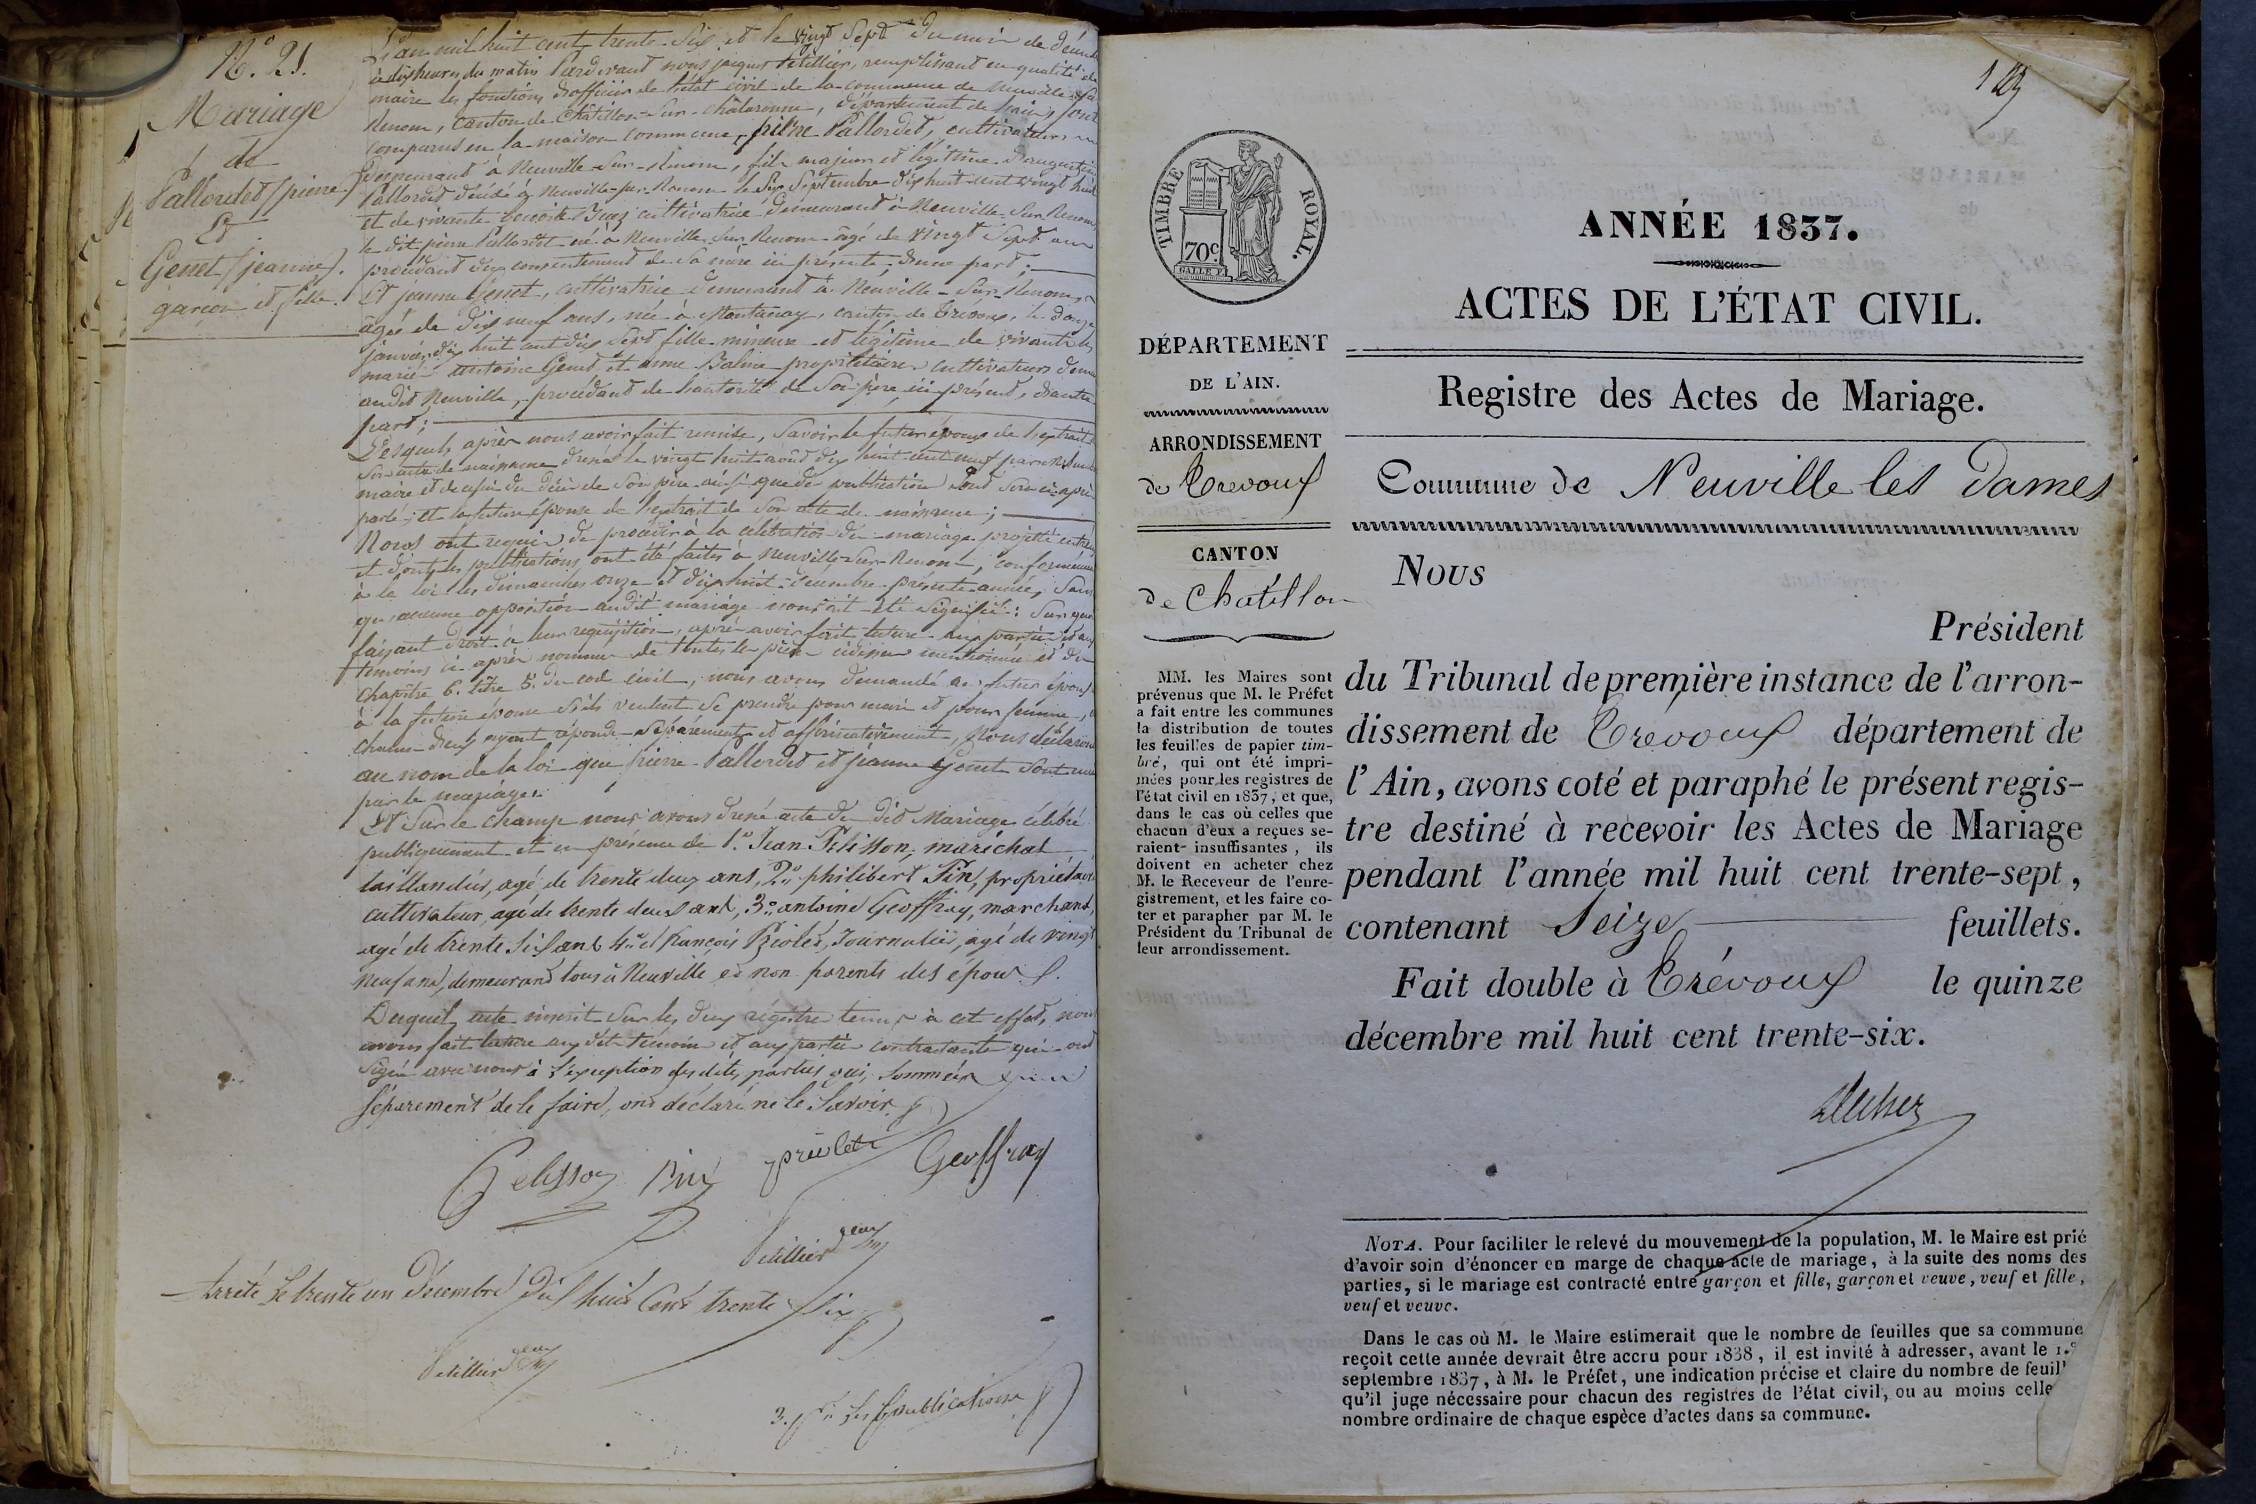 N.° 21.
Mariage
de
Pallordet (pierre)
Et
Genet (jeanne).
garçon et fille.
L'an mil huit cent trente-six et le vingt sept du mois de décembre
à dix heures du matin Pardevant nous jacques Petillier, remplissant en qualité de
maire les fonctions d'officier de l'état civil de la commune de Neuville-sur
Renom, canton de Châtillon-sur-châlaronne, département de l'ain, sont
comparus en la maison commune, pierre Pallordet, cultivateur
demeurant à Neuville-sur-Renom, fils majeur et légitime d'augustin
Pallordet décédé à Neuville-sur-Renom le six septembre dix huit cent vingt huit
et de vivante benoite cultivatrice demeurant à Neuville-sur-Renom,
le dit pierre Pallordet né à Neuville-sur-Renom âgé de vingt sept ans
procédant du consentement de sa mère ici présente, d'une part;
Et jeanne Genet, cultivatrice demeurant à Neuville-sur-Renom,
âgée de dix neuf ans, née à Montanay, canton de Trévoux, le douze
janvier dix huit cent dix sept fille mineure et légitime de vivants les
mariés antoine Genet et anne Balme propriétaires cultivateurs
audit Neuville, procédant de l'autorité de son père, ici présent, d'autre
part;
Lesquels après nous avoir fait remise, savoir le futur époux de l'extrait de
son acte de naissance dressé le vingt huit août dix huit cent neuf par
maire et de celui du décès de son père ainsi que des publications dont sera ci-après
parlé; et la future épouse de l'extrait de son acte de naissance;
Nous ont requis de procéder à la célébration du mariage projetté entr'eux
et dont les publications ont été faites à Neuville-sur-Renom, conformément
à la loi les dimanches onze et dix huit décembre présente année, sans
qu'aucune opposition audit mariage nous ait été signifiée: sur quoi
faisant droit à leur requisition, après avoir fait lecture aux parties et aux
témoins ci-après nommés de toutes les pièces ci-dessus mentionnées et du
chapitre 6. titre 5. du code civil, nous avons demandé au futur époux
à la future épouse s'ils veulent se prendre pour mari et pour femme,
chacun d'eux ayant répondu séparément et affirmativement, Nous déclarons
au nom de la loi que pierre Pallordet et jeanne Genet sont unis
par le mariage.
Et sur le champ nous avons dressé acte du dit Mariage célébré
publiquement et en présence de 1.° Jean Pelisson, maréchal
taillandier, agé de trente deux ans, 2.° philibert Pin, propriétaire
cultivateur, agé de trente deux ans, 3.° antoine Geoffray, marchand,
agé de trente six ans 4.° et françois Briolet, Journalier, agé de vingt
neuf ans, demeurans tous à Neuville, et non parents des époux.
Duquel acte inscrit sur les deux régistres tenus à cet effet, nous
avons fait lecture aux dits témoins et aux parties contractantes qui ont
signé avec nous à l'exception des dites parties qui, sommées
séparement de le faire, ont déclaré ne le savoir.
Pelisson Pin priolet Geoffray
Petillier
Arrêté le trente un Décembre Dix huit Cent trente six
Petillier
les publications
ANNÉE 1837.
ACTES DE L'ÉTAT CIVIL.
Registre des Actes de Mariage.
Commune de Neuville les Dames
TIMBRE ROYAL.
70c
DÉPARTEMENT
DE L'AIN.
ARRONDISSEMENT
de Trevoux
CANTON
de Chatillon
MM. les Maires sont
prévenus que M. le Préfet
a fait entre les communes
la distribution de toutes
les feuilles de papier tim-
bré, qui ont été impri-
mées pour les registres de
l'état civil en 1837, et que,
dans le cas où celles que
chacun d'eux a reçues se-
raient insuffisantes, ils
doivent en acheter chez
M. le Receveur de l'enre-
gistrement, et les faire co-
ter et parapher par M. le
Président du Tribunal de
leur arrondissement.
Nous
Président
du Tribunal de première instance de l'arron-
dissement de Trevoux département de
l'Ain, avons coté et paraphé le présent regis-
tre destiné à recevoir les Actes de Mariage
pendant l'année mil huit cent trente-sept,
contenant Seize feuillets.
Fait double à Trévoux le quinze
décembre mil huit cent trente-six.
NOTA. Pour faciliter le relevé du mouvement de la population, M. le Maire est prié
d'avoir soin d'énoncer en marge de chaque acte de mariage, à la suite des noms des
parties, si le mariage est contracté entre garçon et fille, garçon et veuve, veuf et fille,
veuf et veuve.
Dans le cas où M. le Maire estimerait que le nombre de feuilles que sa commune
reçoit cette année devrait être accru pour 1838, il est invité à adresser, avant le 1.er
septembre 1837, à M. le Préfet, une indication précise et claire du nombre de feuill
qu'il juge nécessaire pour chacun des registres de l'état civil, ou au moins celle
nombre ordinaire de chaque espèce d'actes dans sa commune.